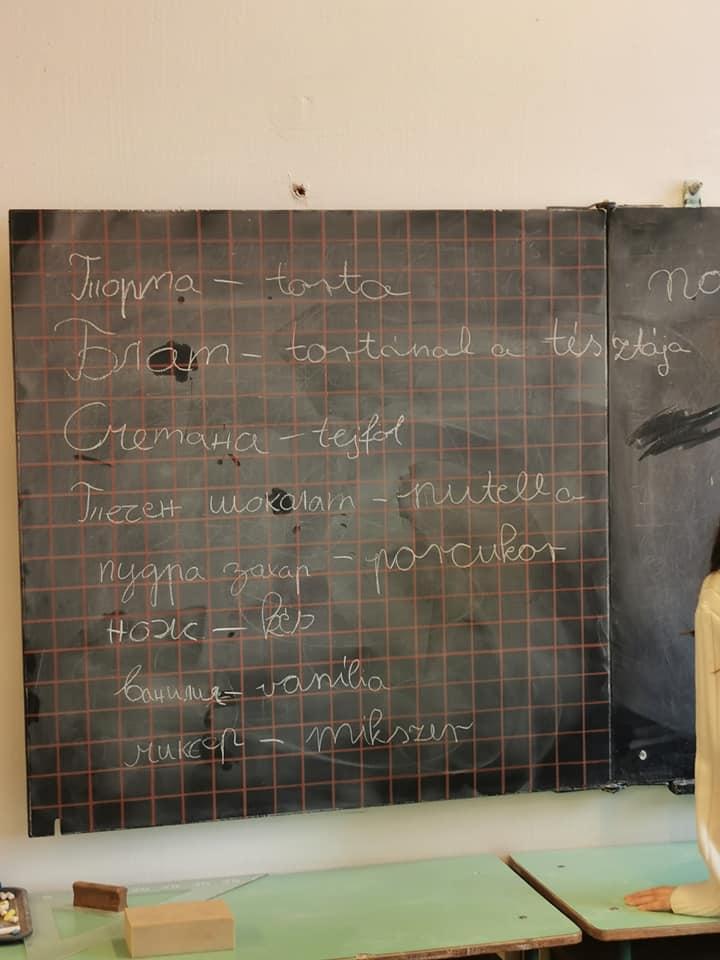 Торта – torta
Блат – tortának a tésztája
Сметана – tejföl
Течен шоколат – nutella
пудра захар – porcukor
нож – kés
ванилия – vanília
миксер – mikszer